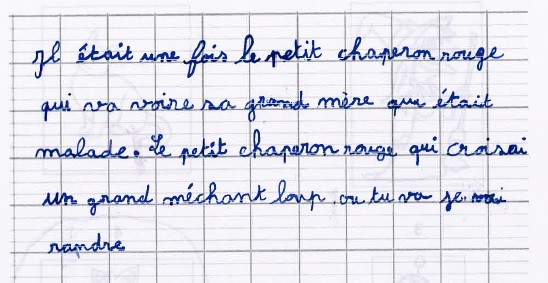 Il était une fois le petit chaperon rouge
qui va voire sa grand mère qui était
malade. Le petit chaperon rouge qui croisai
un grand méchant loup ou tu va je vai
randre